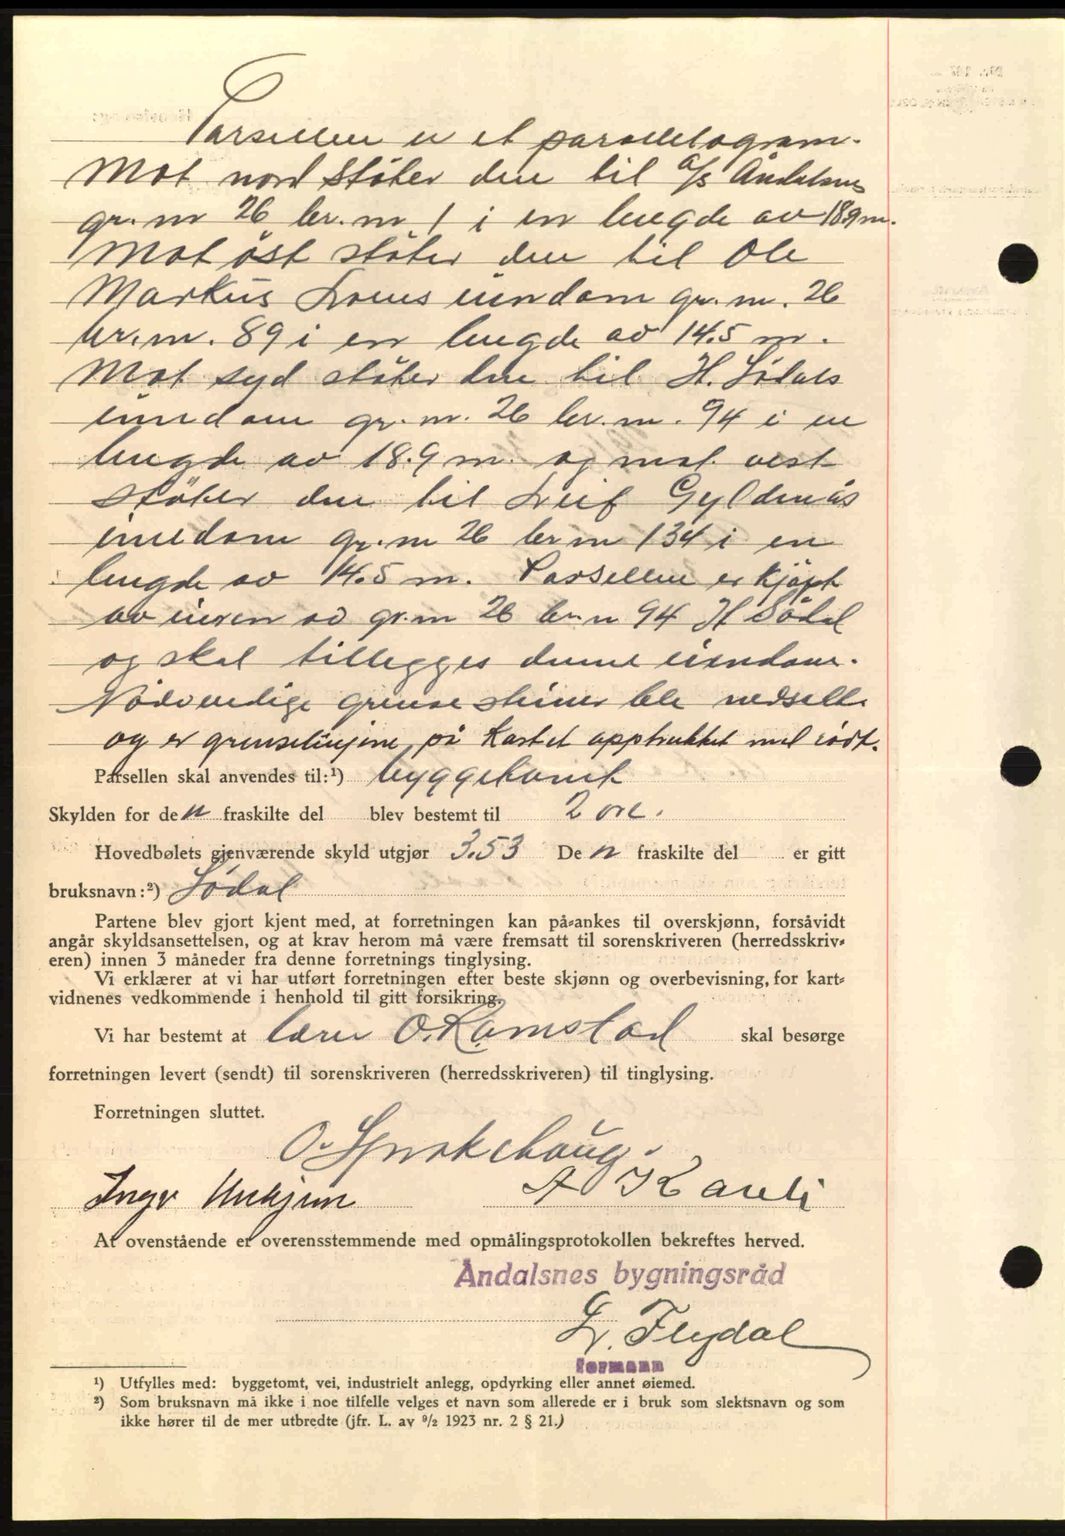 Parsellen er et parallelogram.
Mot nord støter den til a/s Åndalsnes
gr. nr 26 br. nr 1 i en lengde av 18.9 m.
Mot øst støter den til Ole
Markus eiendom gr. nr. 26
br. nr. 89 i en lengde av 14.5 m.
Mot syd støter den til H. Sødals
eiendom gr. nr. 26 br. nr. 94 i en
lengde av 18.9 m. og mot vest
støter den til Leif Gyldenås
eiendom gr. nr 26 br nr 134 i en
lengde av 14.5 m. Parsellen er kjøpt
av eieren av gr. nr 26 br. n 94 H Sødal
og skal tillegges denne eiendom.
Nødvendige grensesteiner ble nedsatt
og er grenselinjene på Kartet opptrukket med rødt.
Parsellen skal anvendes til:¹) byggetomt
Skylden for den fraskilte del blev bestemt til 2 øre.
Hovedbølets gjenværende skyld utgjør 3.53 Den fraskilte del er gitt
bruksnavn:²) Sødal
Partene blev gjort kjent med, at forretningen kan på-ankes til overskjønn, forsåvidt
angår skyldsansettelsen, og at krav herom må være fremsatt til sorenskriveren (herredsskriv-
eren) innen 3 måneder fra denne forretnings tinglysing.
Vi erklærer at vi har utført forretningen efter beste skjønn og overbevisning, for kart-
vidnenes vedkommende i henhold til gitt forsikring.
Vi har bestemt at lærer O. Ramstad skal besørge
forretningen levert (sendt) til sorenskriveren (herredsskriveren) til tinglysing.
Forretningen sluttet.
O. Spnokehaug.
Ingv A K
At ovenstående er overensstemmende med opmålingsprotokollen bekreftes herved.
Åndalsnes bygningsråd
L. Flydal
formann
¹) Utfylles med: byggetomt, vei, industrielt anlegg, opdyrking eller annet øiemed.
²) Som bruksnavn må ikke i noe tilfelle velges et navn som allerede er i bruk som slektsnavn og som
ikke hører til de mer utbredte (jfr. L. av 9/2 1923 nr. 2 § 21.)